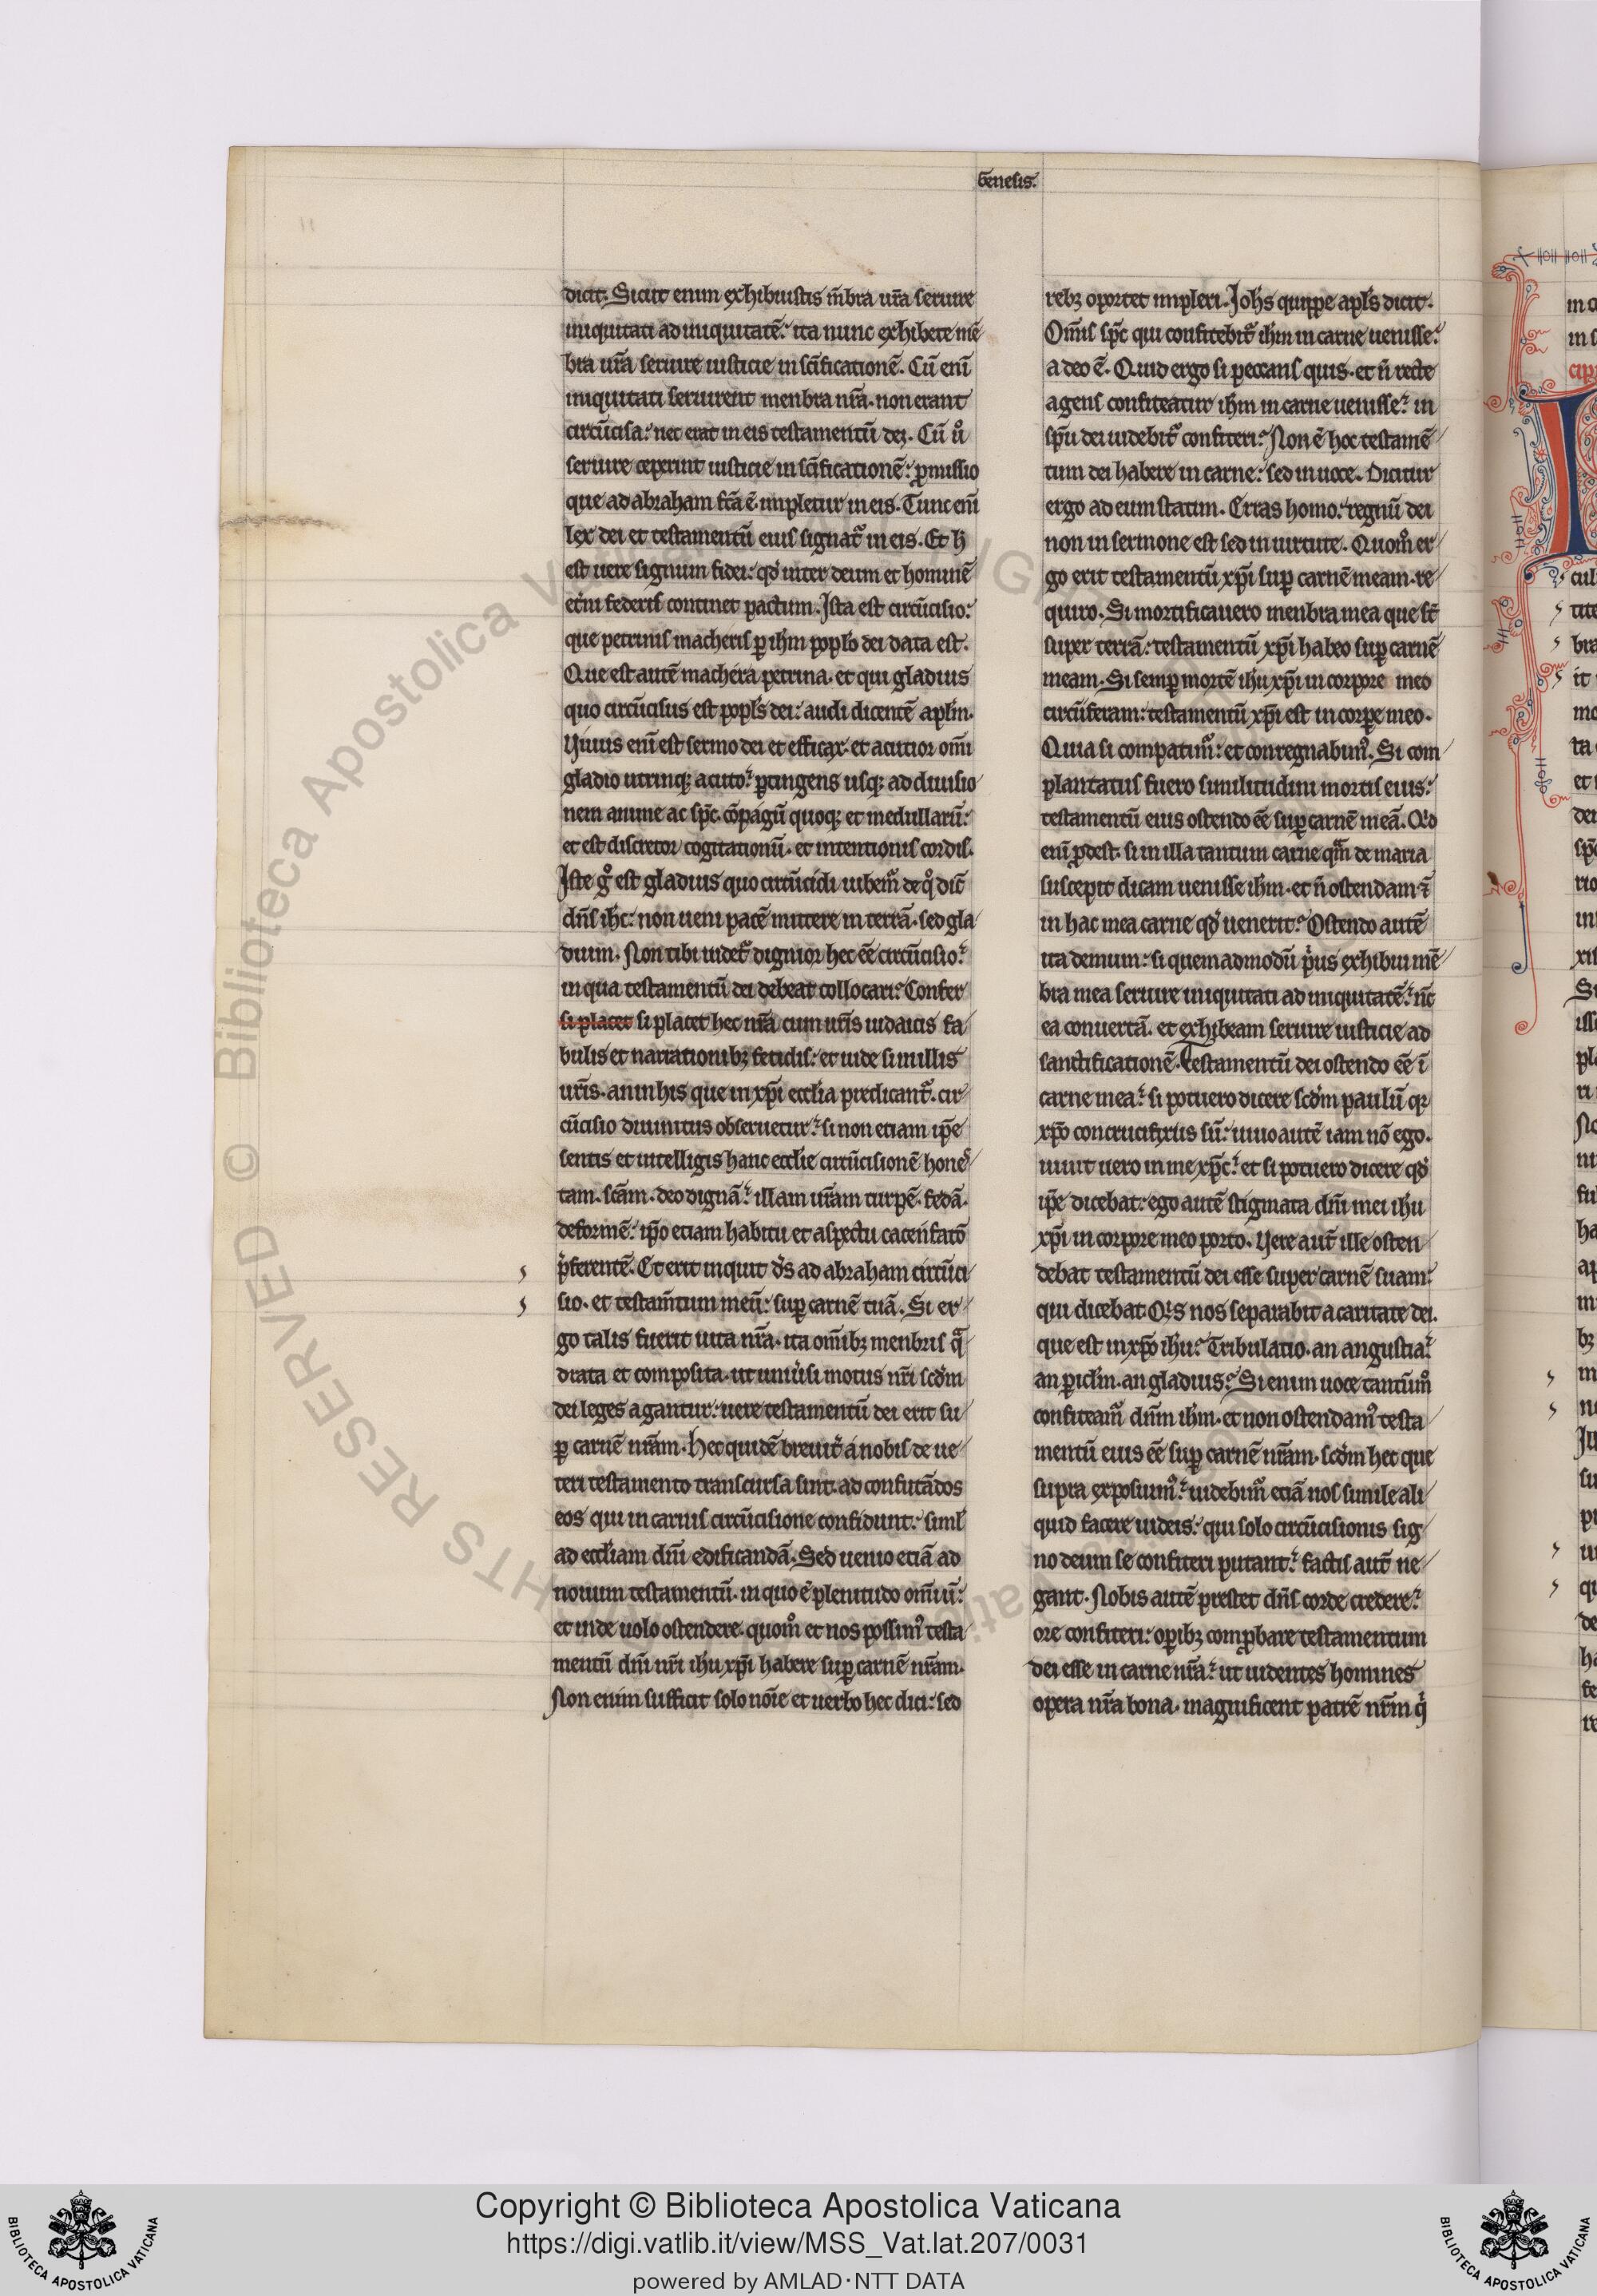 Genesis.
dicit. Sicut enim exhibuistis m̄bra ur̄a seruire
iniquitati ad iniquitatē: ita nunc exhibete mē
bra ur̄a seruire iusticie in sc̄ificationē. Cū eni
iniquitati seruirent menbra nr̄a. non erant
circūcisa: nec erat in eis testamentū dei. Cū ů
seruire ceperint iusticie in sc̄ificationē: ꝓmissio
que ad abraham fc̄a ē. impletur in eis. Tunc eni
lex dei et testamentū eius signat᷑ in eis. Et h̄
est uere signum fidei: qd̄ inter deum et hominē
et̄ni federis continet pactum. Ista est circūcisio:
que petrinis macheris ꝑ ihm̄ popl̄o dei data est.
Que est autē machera petrina. et qui gladius
quo circūcisus est popl̄s dei: audi dicentē apl̄m.
Viuus eni est sermo dei et efficax. et acutior om̄i
gladio utrinqꝫ acuto: ꝑtingens usqꝫ ad diuisio
nem anime ac sp̄c. cōpagū quoqꝫ et medullarū:
et est discretor cogitationū. et intentionis cordis.
Iste gͦ est gladius quo circūcidi iubem᷑ de qͦ dic̄
dn̄s ih̄c: non ueni pacē mittere in terrā. sed gla
dium. Non tibi uidet᷑ dignior hec ēē circūcisio:
in qua testamentū dei debeat collocari: Confer
si placet si placet hec nr̄a cum ur̄is iudaicis fa
bulis et narrationibꝫ fetidis: et uide si in illis
ur̄is. an in his que in xp̄i eccl̄ia predicant᷑. cir
cūcisio diuinitus obseruetur: si non etiam ip̄e
sentis et intelligis hanc ecclie circūcisionē hones
tam. sc̄am. deo dignā: illam ur̄am turpē. fedā.
deformē: ip̄o etiam habitu et aspectu cacenfatō
p̄ferentē. Et erit inquit ds̄ ad abraham circūci
sio. et testam̄tum meū: suꝑ carnē tuā. Si er
go talis fuerit uita nr̄a. ita om̄ibꝫ menbris qͣ
drata et composita. ut uniůsi motus nr̄i scd̄m
dei leges agantur: uere testamentū dei erit su
ꝑ carnē nr̄am. Hec quidē breuit᷑ a nobis de ue
teri testamento transcursa sint. ad confutādos
eos qui in carnis circūcisione confidunt: siml̄
ad eccl̄iam dn̄i edificandā. Sed uenio etiā ad
nouum testamentū. in quo ē plenitudo om̄iū:
et inde uolo ostendere. quom̊ et nos possimꝰ testa
mentū dn̄i nr̄i ihu xp̄i habere suꝑ carnē nr̄am.
Non enim sufficit solo noīe et uerbo hec dici: sed
rebꝫ oportet impleri. Ioh̄s quippe apl̄s dicit.
Om̄is sp̄c qui confitebit᷑ ihm̄ in carne uenisse:
a deo ē. Quid ergo si peccans quis. et n̄ recte
agens confiteatur ihm̄ in carne uenisse: in
sp̄u dei uidebit᷑ confiteri: Non ē hoc testamē
tum dei habere in carne: sed in uoce. Dicitur
ergo ad eum statim. Erras homo: regnū dei
non in sermone est sed in uirtute. Quom̊ er
go erit testamentū xp̄i suꝑ carnē meam. re
quiro. Si mortificauero menbra mea que st̄
super terrā: testamentū xp̄i habeo suꝑ carnē
meam. Si semꝑ mortē ihu xp̄i in corpore meo
circūferam: testamentū xp̄i est in corꝑe meo.
Quia si compatim᷑: et conregnabimꝰ. Si com
plantatus fuero similitudini mortis eius:
testamentū eius ostendo ēē suꝑ carnē meā. Qͥd
eni ꝓdest. si in illa tantum carne qͣm de maria
suscepit dicam uenisse ihm̄. et n̄ ostendam ⁊
in hac mea carne qd̄ uenerit: Ostendo autē
ita demum: si quemadmodū pͥus exhibui mē
bra mea seruire iniquitati ad iniquitatē: nc̄
ea conuertā. et exhibeam seruire iusticie ad
sanctificationē. Testamentū dei ostendo ēē ī
carne mea: si potuero dicere scd̄m paulū qꝛ
xp̄o concrucifixus sū: uiuo autē iam nō ego.
uiuit uero in me xp̄c: et si potuero dicere qd̄
ip̄e dicebat: ego autē stigmata dn̄i mei ihu
xp̄i in corpore meo porto. Vere aut̄ ille osten
debat testamentū dei esse super carnē suam:
qui dicebat. Qͥs nos separabit a caritate dei.
que est in xp̄o ihu: Tribulatio. an angustia:
an ꝑicl̄m. an gladius: Si enim uoce tantūm̊
confiteam᷑ dn̄m ihm̄. et non ostendamꝰ testa
mentū eius ēē suꝑ carnē nr̄am. scd̄m hec que
supra exposuimꝰ: uidebim᷑ etiā nos simile ali
quid facere iudeis: qui solo circūcisionis sig
no deum se confiteri putant: factis aut̄ ne
gant. Nobis autē prestet dn̄s corde credere:
ore confiteri: oꝑibꝫ comꝓbare testamentum
dei esse in carne nr̄a: ut uidentes homines
opera nr̄a bona. magnificent patrē nr̄m qͥ
Copyright © Biblioteca Apostolica Vaticana
https://digi.vatlib.it/view/MSS_Vat.lat.207/0031
powered by AMLAD·NTT DATA